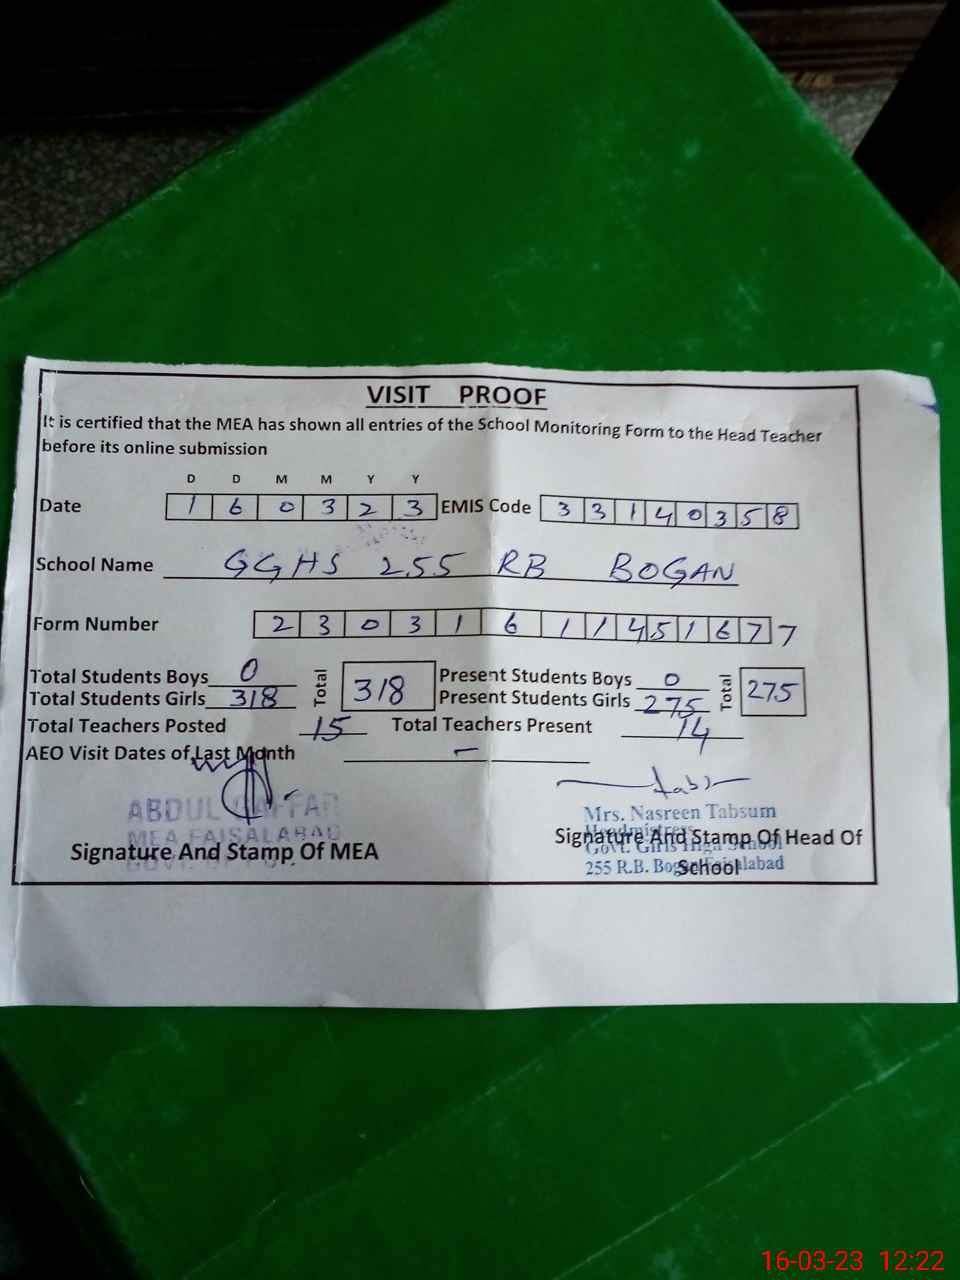 VISIT PROOF
It is certified that the MEA has shown all entries of the School Monitoring Form to the Head Teacher
before its online submission
D D M M Y Y
Date 1 6 0 3 2 3 EMIS Code 3 3 1 4 0 3 5 8
School Name GGHS 255 RB BOGAN
Form Number 2 3 0 3 1 6 1 1 4 5 1 6 7 7
Total Students Boys 0 Total 318 Present Students Boys 0 Total 275
Total Students Girls 318 Present Students Girls 275
Total Teachers Posted 15 Total Teachers Present 14
AEO Visit Dates of Last Month -
ABDUL GAFFAR
MEA FAISALABAD
Signature And Stamp Of MEA
Mrs. Nasreen Tabsum
Headmistress
Signature And Stamp Of Head Of
School
Govt. Girls High School
255 R.B. Bogan Faisalabad
16-03-23 12:22